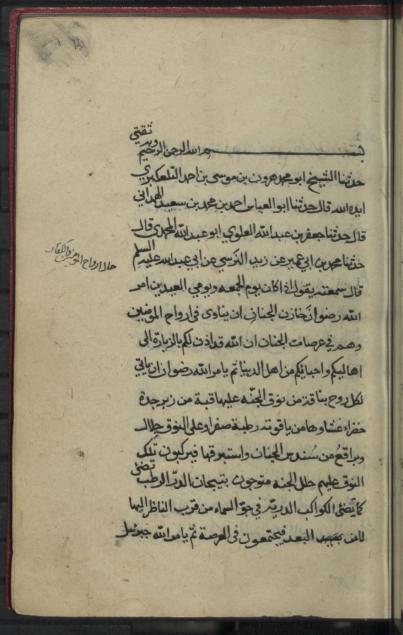 بسم الله الرحمن الرحيم وبه ثقتي
حدثنا الشيخ ابو محمد هرون بن موسى بن احمد التلعكبري
ايده الله قال حدثنا ابو العباس احمد بن محمد بن سعيد الهمداني
قال حدثنا جعفر بن عبد الله العلوي ابو عبد الله المحمدي قال
حدثنا محمد بن ابي عمير عن زيد النرسي عن ابي عبد الله عليه السلم
قال سمعته يقول اذا كان يوم الجمعه ويومي العيدين امر
الله رضوان خازن الجنان ان ينادي في ارواح المؤمنين
وهم في عرصات الجنان ان الله قد اذن لكم بالزيارة الى
اهاليكم واحبائكم من اهل الدنيا ثم يامر الله رضوان ان ياتي
لكل روح بناقة من نوق الجنه عليها قبة من زبرجدة
خضراء غشاوها من ياقوته رطبة صفراء على النوق جلال
وبراقع من سندس الجنان واستبرقها فيركبون تلك
النوق عليهم حلل الجنه متوجون بتيجان الدر الرطب تضئ
كما تضئ الكواكب الدريه في جو السماء من قرب الناظر اليها
لا من البعد فيجتمعون في العرصة ثم يامر الله جبرئيل
حال ارواح المؤمنين